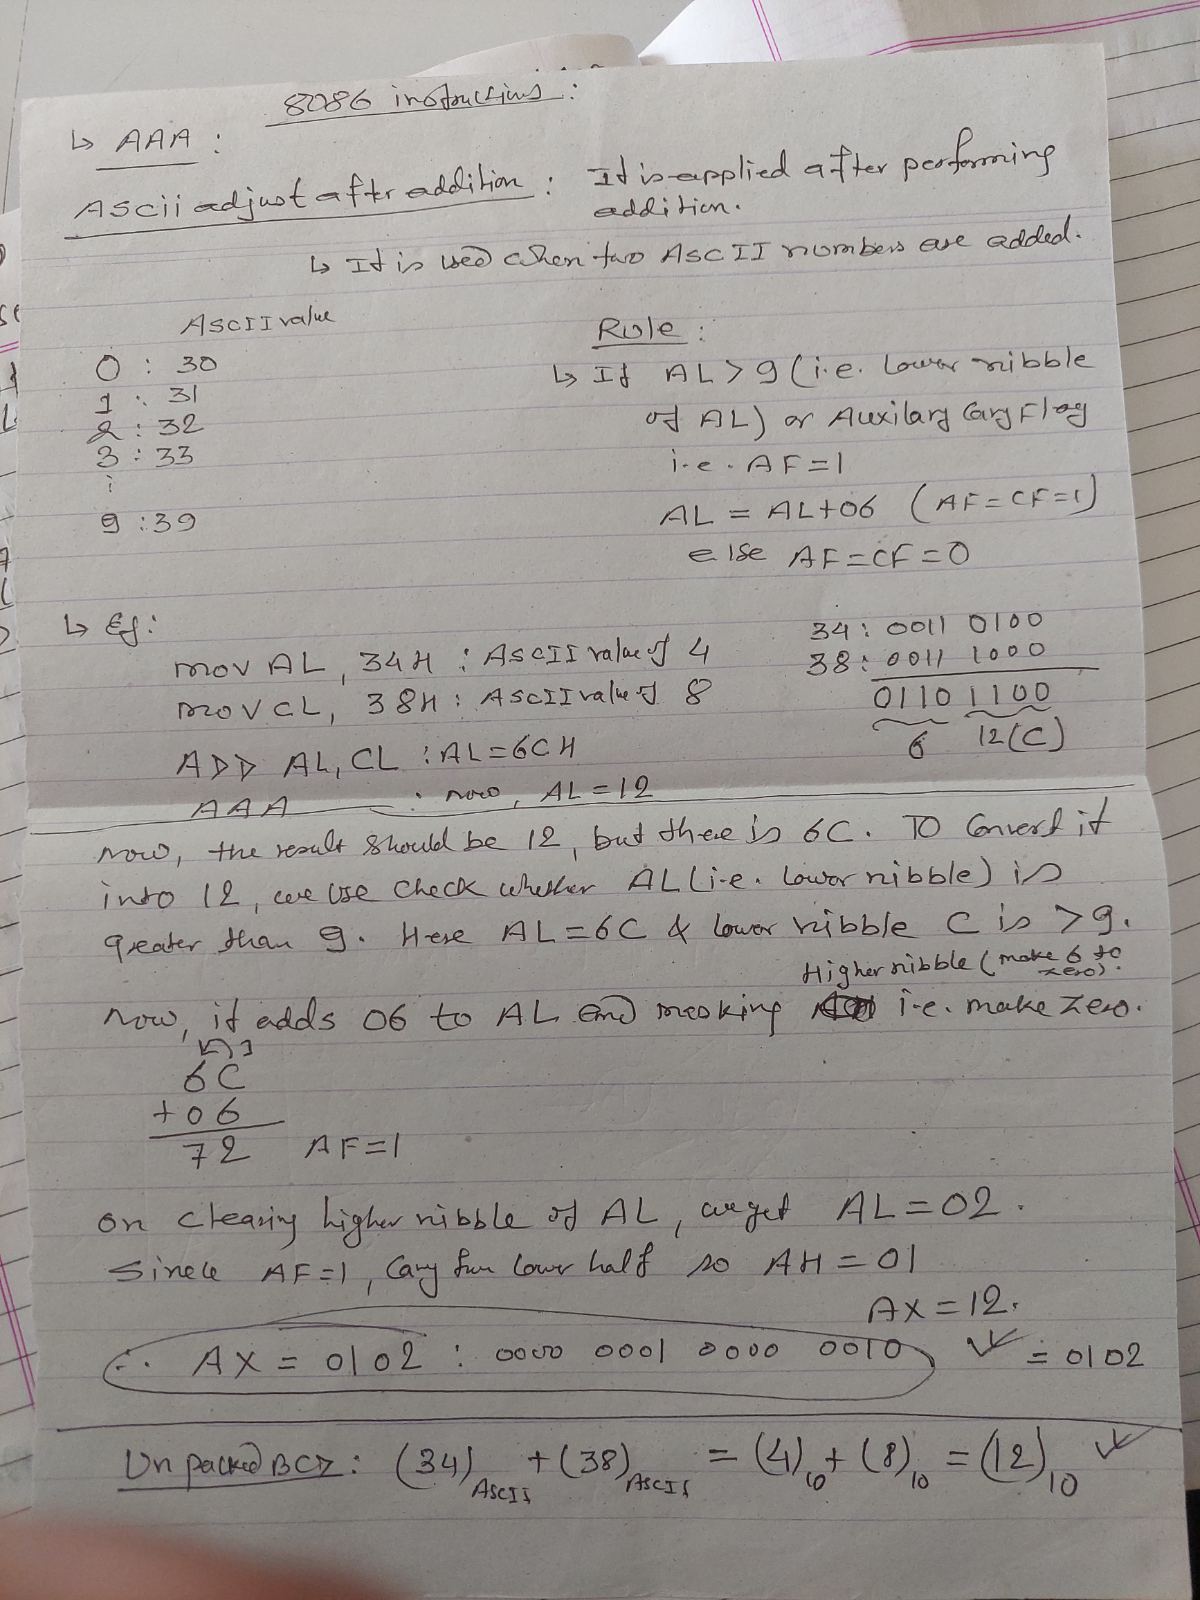 8086 instructions:
↳ AAA :
ASCii adjust after addition : It is applied after performing
addition.
↳ It is used when two ASCII numbers are added.
ASCII value
0 : 30
1 : 31
2 : 32
3 : 33
9 : 39
Rule :
↳ If AL > 9 (i.e. lower nibble
of AL) or Auxilary Cary Flag
i.e. AF=1
AL = AL+06 (AF=CF=1)
else AF=CF=0
↳ Eg:
MOV AL, 34H : ASCII value of 4
MOV CL, 38H : ASCII value of 8
ADD AL, CL : AL=6CH
AAA : now, AL=12
34 : 0011 0100
38 : 0011 1000
0110 1100
6 12(C)
Now, the result should be 12, but there is 6C. TO Convert it
into 12, we use check whether AL (i.e. lower nibble) is
greater than 9. Here AL=6C & lower nibble C is >9.
Higher nibble (make 6 to
zero).
Now, it adds 06 to AL and masking i.e. make zero.
6C
+06
72 AF=1
On clearing higher nibble of AL, we get AL=02.
Since AF=1, Cary from lower half so AH=01
AX=12.
∴ AX = 0102 : 0000 0001 0000 0010 ✓ = 0102
Unpacked BCD : (34)ASCII + (38)ASCII = (4)10 + (8)10 = (12)10 ✓